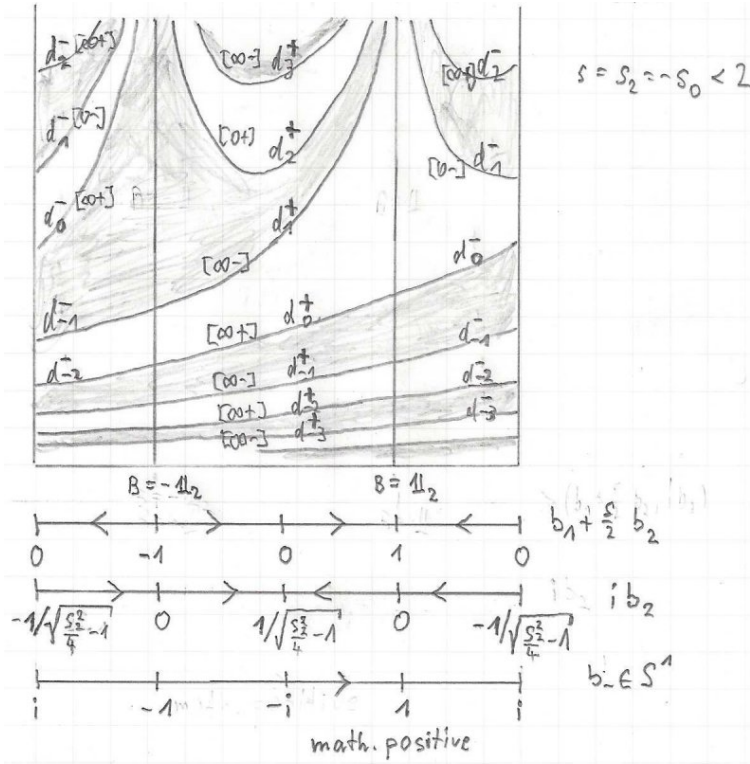 d₂⁻ [∞+] [∞-] d₃⁺ [∞+] d₂⁻ s = s₂ = -s₀ < 2
d₁⁻ [0-] [0+] d₂⁺ [0-] d₁⁻
d₀⁻ [∞+] d₁⁺
[∞-] d₀⁻
d₋₁⁻ [∞+] d₀⁺
d₋₂⁻ [∞-] d₋₁⁺ d₋₁⁻
[∞+] d₋₂⁺ d₋₂⁻
[∞-] d₋₃⁺ d₋₃⁻
B = -𝟙₂ B = 𝟙₂
b₁ + s/2 b₂
0 -1 0 1 0
i b₂
-1/√(s₂²/4 - 1) 0 1/√(s₂²/4 - 1) 0 -1/√(s₂²/4 - 1)
b₋ ∈ S¹
i -1 -i 1 i
math. positive